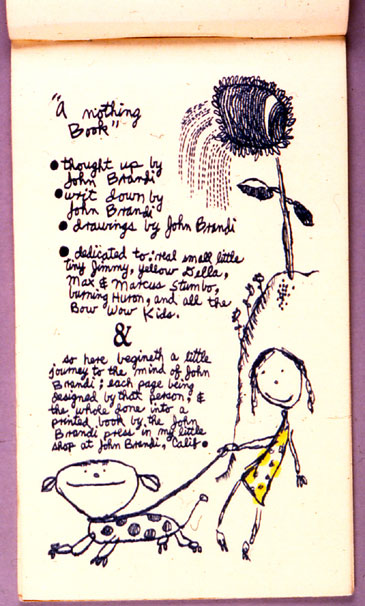 "a nothing
Book"
● thought up by
John Brandi
● writ down by
John Brandi
● drawings by John Brandi
● dedicated to: real small little
tiny Jimmy, yellow Della,
Max & Marcus Stumbo,
burning Huron, and all the
Bow Wow Kids.
&
so here begineth a little
journey to the mind of John
Brandi; each page being
designed by that person; &
the whole done into a
printed book by the John
Brandi press in my little
shop at John Brandi, Calif●